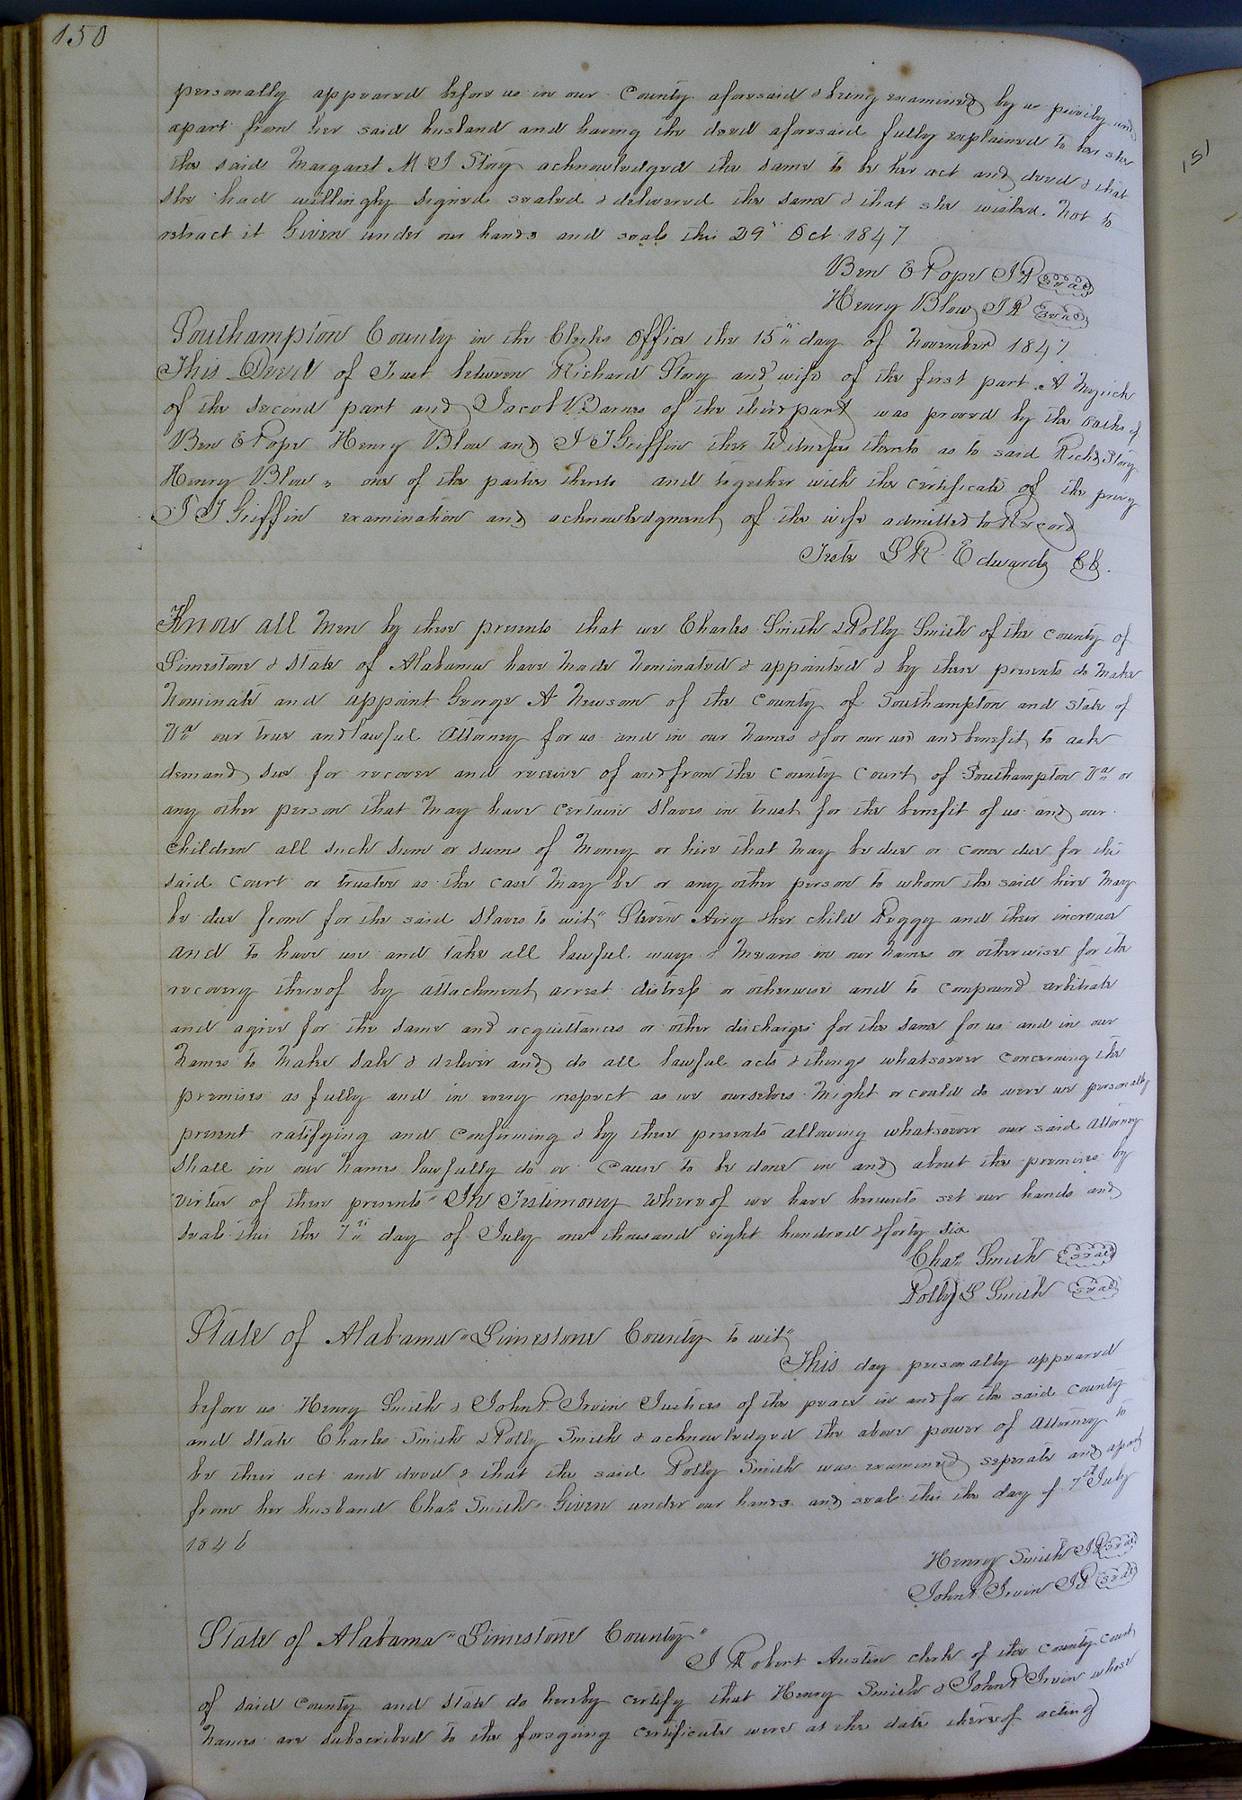 150
personally appeared before us in our County aforesaid & being examined by us privily and
apart from her said husband and having the deed aforesaid fully explained to her she
the said Margaret M S Story acknowledged the same to be her act and deed & that
she had willingly signed sealed & delivered the same & that she wished not to
retract it Given under our hands and seals this 29" Oct 1847
Ben E Pope J P Seal
Henry Blow J P Seal
Southampton County in the Clerks Office the 15" day of November 1847
This Deed of Trust between Richard Story and wife of the first part A Myrick
of the second part and Jacob Barnes of the third part was proved by the oaths of
Ben E Pope Henry Blow and J J Griffin the Witnesses thereto as to said Richd Story
Henry Blow one of the parties thereto and together with the certificate of the privy
J J Griffin examination and acknowledgment of the wife admitted to Record
Teste L R Edwards CC.
Know all Men by these presents that we Charles Smith & Polly Smith of the county of
Limestone & State of Alabama have made nominated & appointed & by these presents do make
nominate and appoint George A Newsom of the County of Southampton and state of
Va our true and lawful Attorney for us and in our names & for our use and benefit to ask
demand sue for recover and receive of and from the County Court of Southampton Va or
any other person that may have certain slaves in trust for the benefit of us and our
children all such sum or sums of money or hire that may be due or come due for the
said court or trustee as the case may be or any other person to whom the said hire may
be due from for the said slaves to wit" Steven Airy & her child Peggy and their increase
and to have use and take all lawful ways & means in our names or otherwise for the
recovery thereof by attachment arrest distress or otherwise and to compound arbitrate
and agree for the same and acquittances or other discharges for the same for us and in our
names to make sale & deliver and do all lawful acts & things whatsoever concerning the
premises as fully and in every respect as we ourselves might or could do were we personally
present ratifying and confirming & by these presents allowing whatsoever our said attorney
shall in our names lawfully do or cause to be done in and about the premises by
virtue of these presents" In Testimony whereof we have hereunto set our hands and
seals this the 7th day of July one thousand eight hundred & forty six
Chas Smith Seal
Polly S Smith Seal
State of Alabama" Limestone County to wit"
This day personally appeared
before us Henry Smith & John P. Irvin Justices of the peace in and for the said county
and state Charles Smith & Polly Smith & acknowledged the above power of attorney to
be their act and deed & that the said Polly Smith was examined seperate and apart
from her husband Chas Smith" Given under our hands and seals this the day of 7th July
1846
Henry Smith J P Seal
John P Irvin J P Seal
State of Alabama" Limestone County"
I Robert Austin clerk of the County Court
of said county and state do hereby certify that Henry Smith & John P Irvin whose
names are subscribed to the foregoing certificate were at the date thereof acting
151